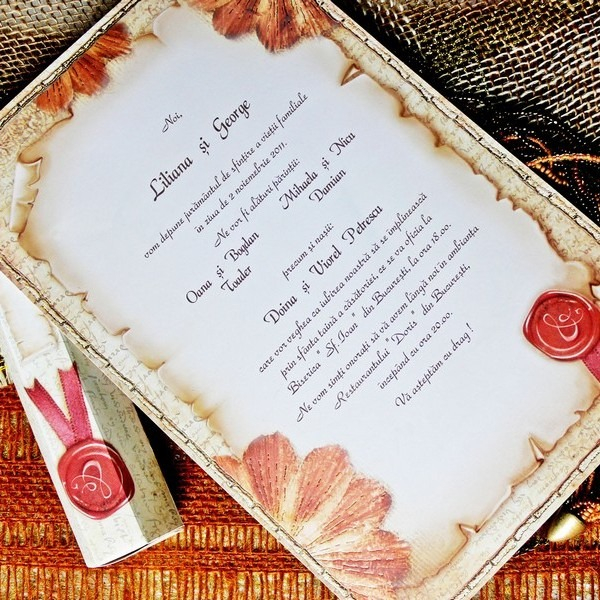 Noi,
Liliana și George
vom depune jurământul de sfințire a vieții familiale
în ziua de 2 noiembrie 2011.
Ne vor fi alături părinții:
Oana și Bogdan Mihaela și Nicu
Toader Damian
precum și nașii:
Doina și Viorel Petrescu
care vor veghea ca iubirea noastră să se împlinească
prin sfânta taină a căsătoriei, ce se va oficia la
Biserica "Sf. Ioan" din București, la ora 18.00.
Ne vom simți onorați să vă avem lângă noi în ambianța
Restaurantului "Doris" din București,
începând cu ora 20.00.
Vă așteptăm cu drag !